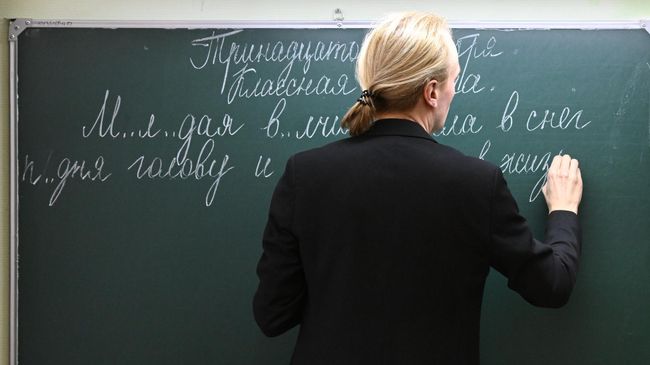 Тринадцато ря
Классная а.
М..л..дая в..лчи ма в снег
п..дня голову и в жизн